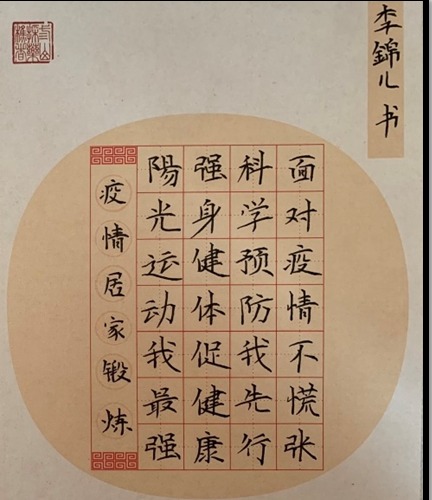 李錦儿书
面对疫情不慌张
科学预防我先行
强身健体促健康
陽光运动我最强
疫情居家锻炼